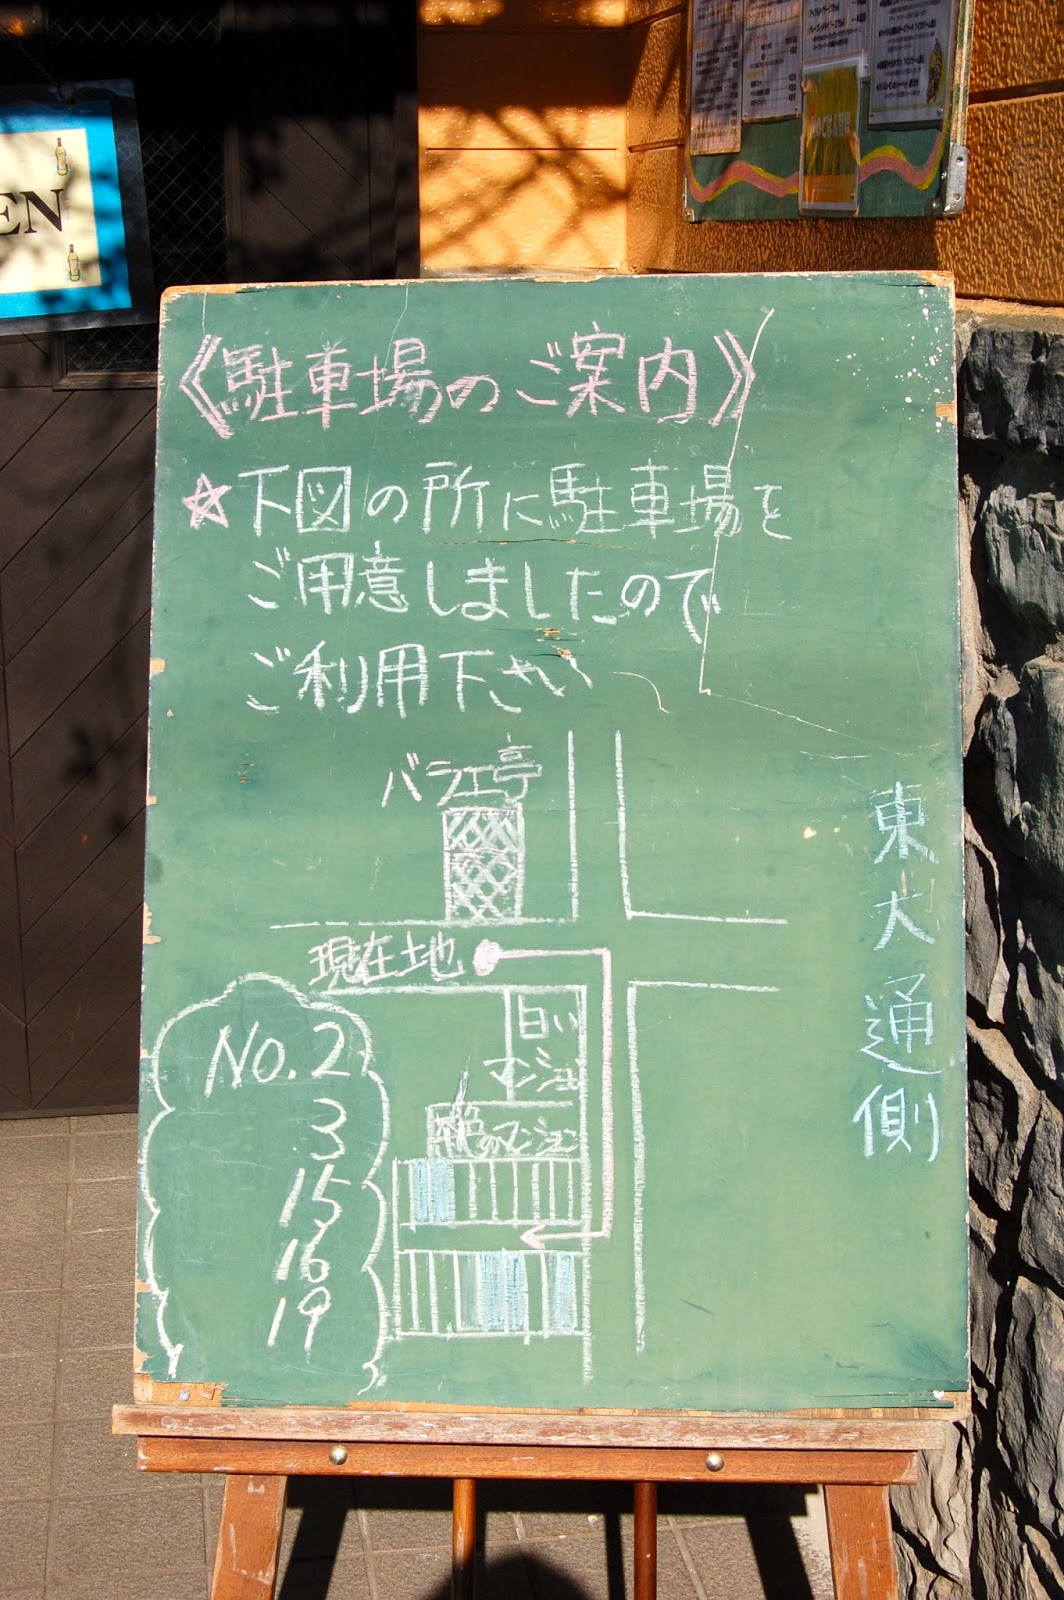 EN
《駐車場のご案内》
☆下図の所に駐車場を
ご用意しましたので
ご利用下さい
バラ亭
現在地
白い
マンション
のマンション
No. 2
3
15
16
19
東大通側